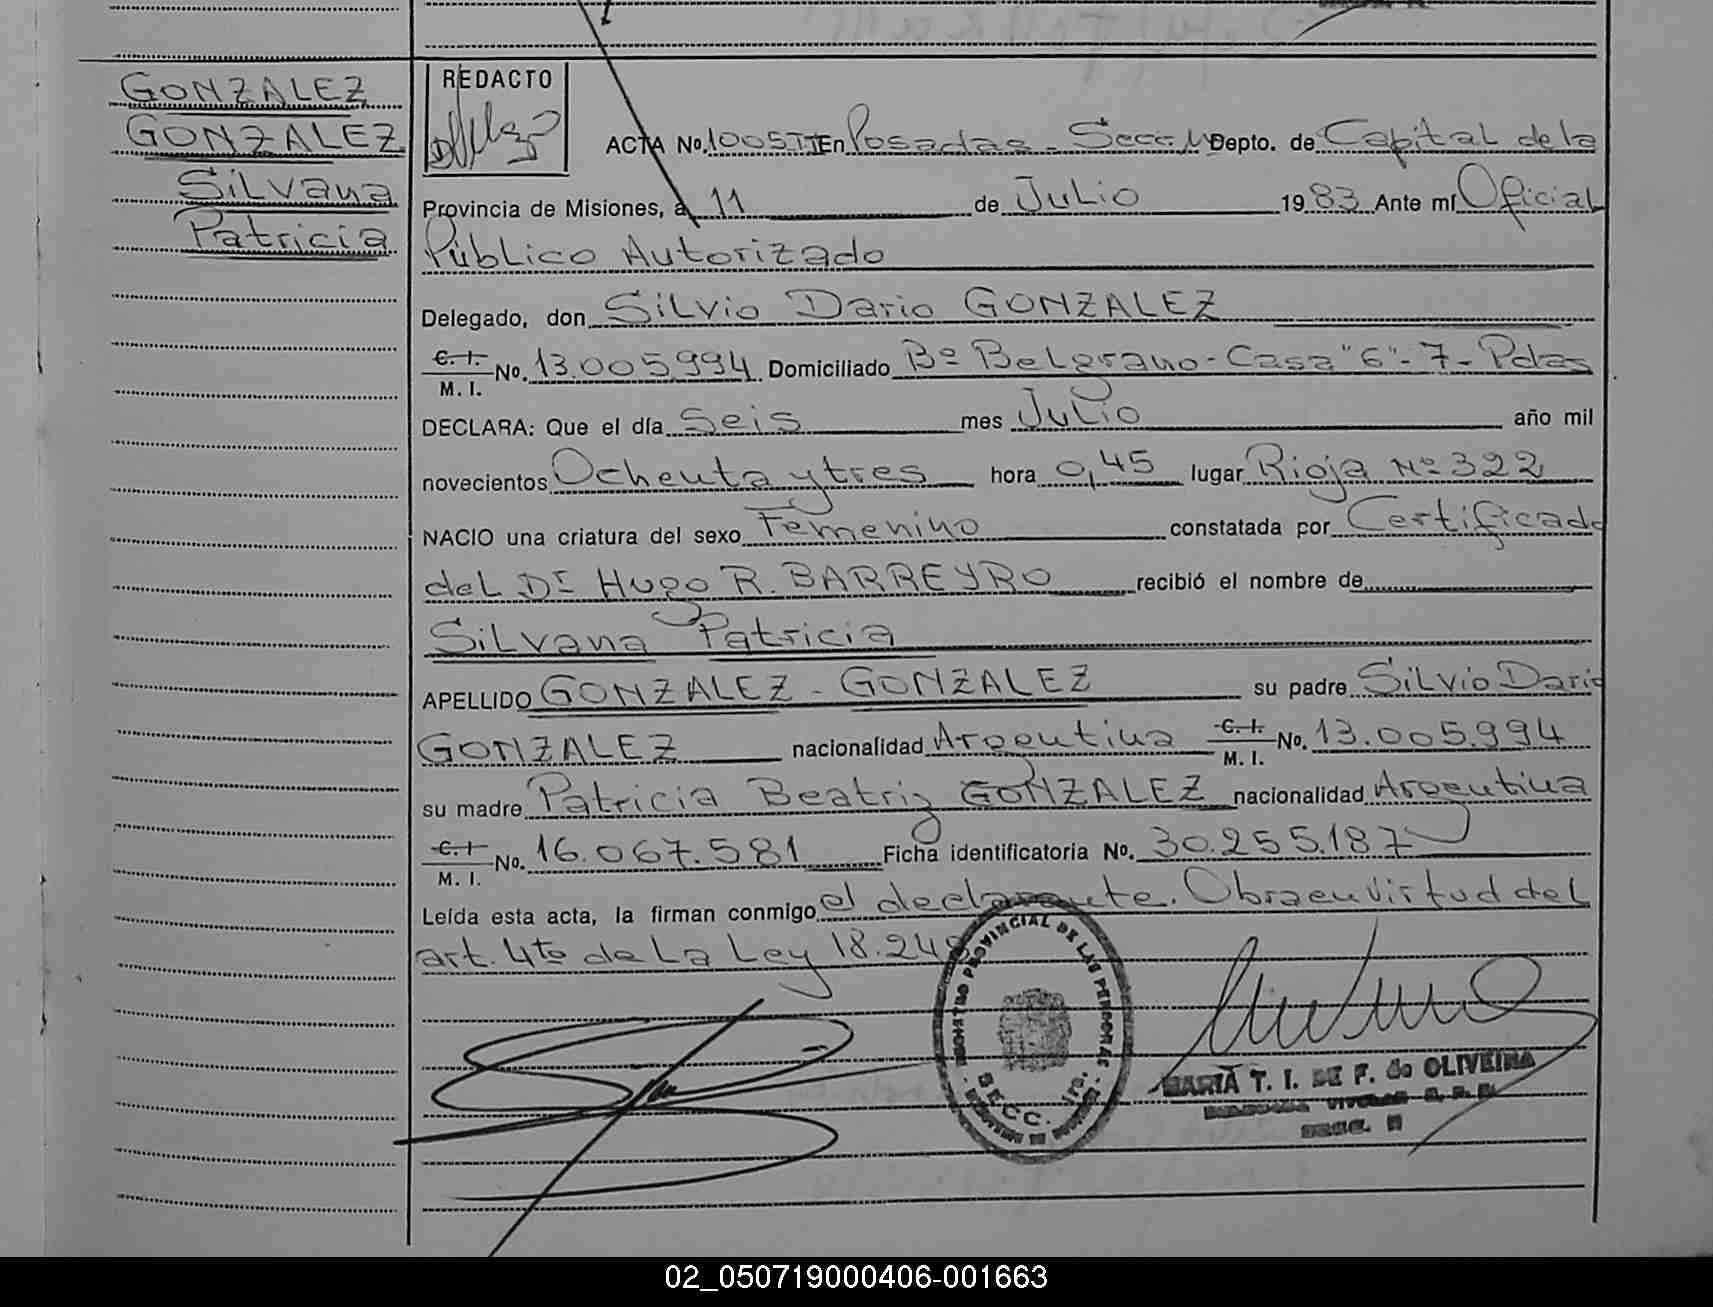 GONZALEZ
GONZALEZ
Silvana
Patricia
REDACTO
ACTA No. 1005 TII En Posadas - Secc. Depto. de Capital de la
Provincia de Misiones, a 11 de Julio 1983 Ante mí Oficial
Público Autorizado
Delegado, don Silvio Dario GONZALEZ
C. I.
M. I. No. 13.005.994 Domiciliado Bº Belgrano - Casa "6" - 7 - Pdas
DECLARA: Que el día Seis mes Julio año mil
novecientos Ochenta y tres hora 0,45 lugar Rioja Nº 322
NACIO una criatura del sexo Femenino constatada por Certificado
del Dr Hugo R. BARREYRO recibió el nombre de
Silvana Patricia
APELLIDO GONZALEZ - GONZALEZ su padre Silvio Dario
GONZALEZ nacionalidad Argentina C. I. M. I. No. 13.005.994
su madre Patricia Beatriz GONZALEZ nacionalidad Argentina
C. I
M. I. No. 16.067.581 Ficha identificatoria No. 30.255.187
Leída esta acta, la firman conmigo el declarante. Obra en virtud del
art. 4to de La Ley 18.248
REGISTRO PROVINCIAL DE LAS PERSONAS
SECC.
MARIA T. I. DE F. de OLIVEIRA
SECC.
02_050719000406-001663